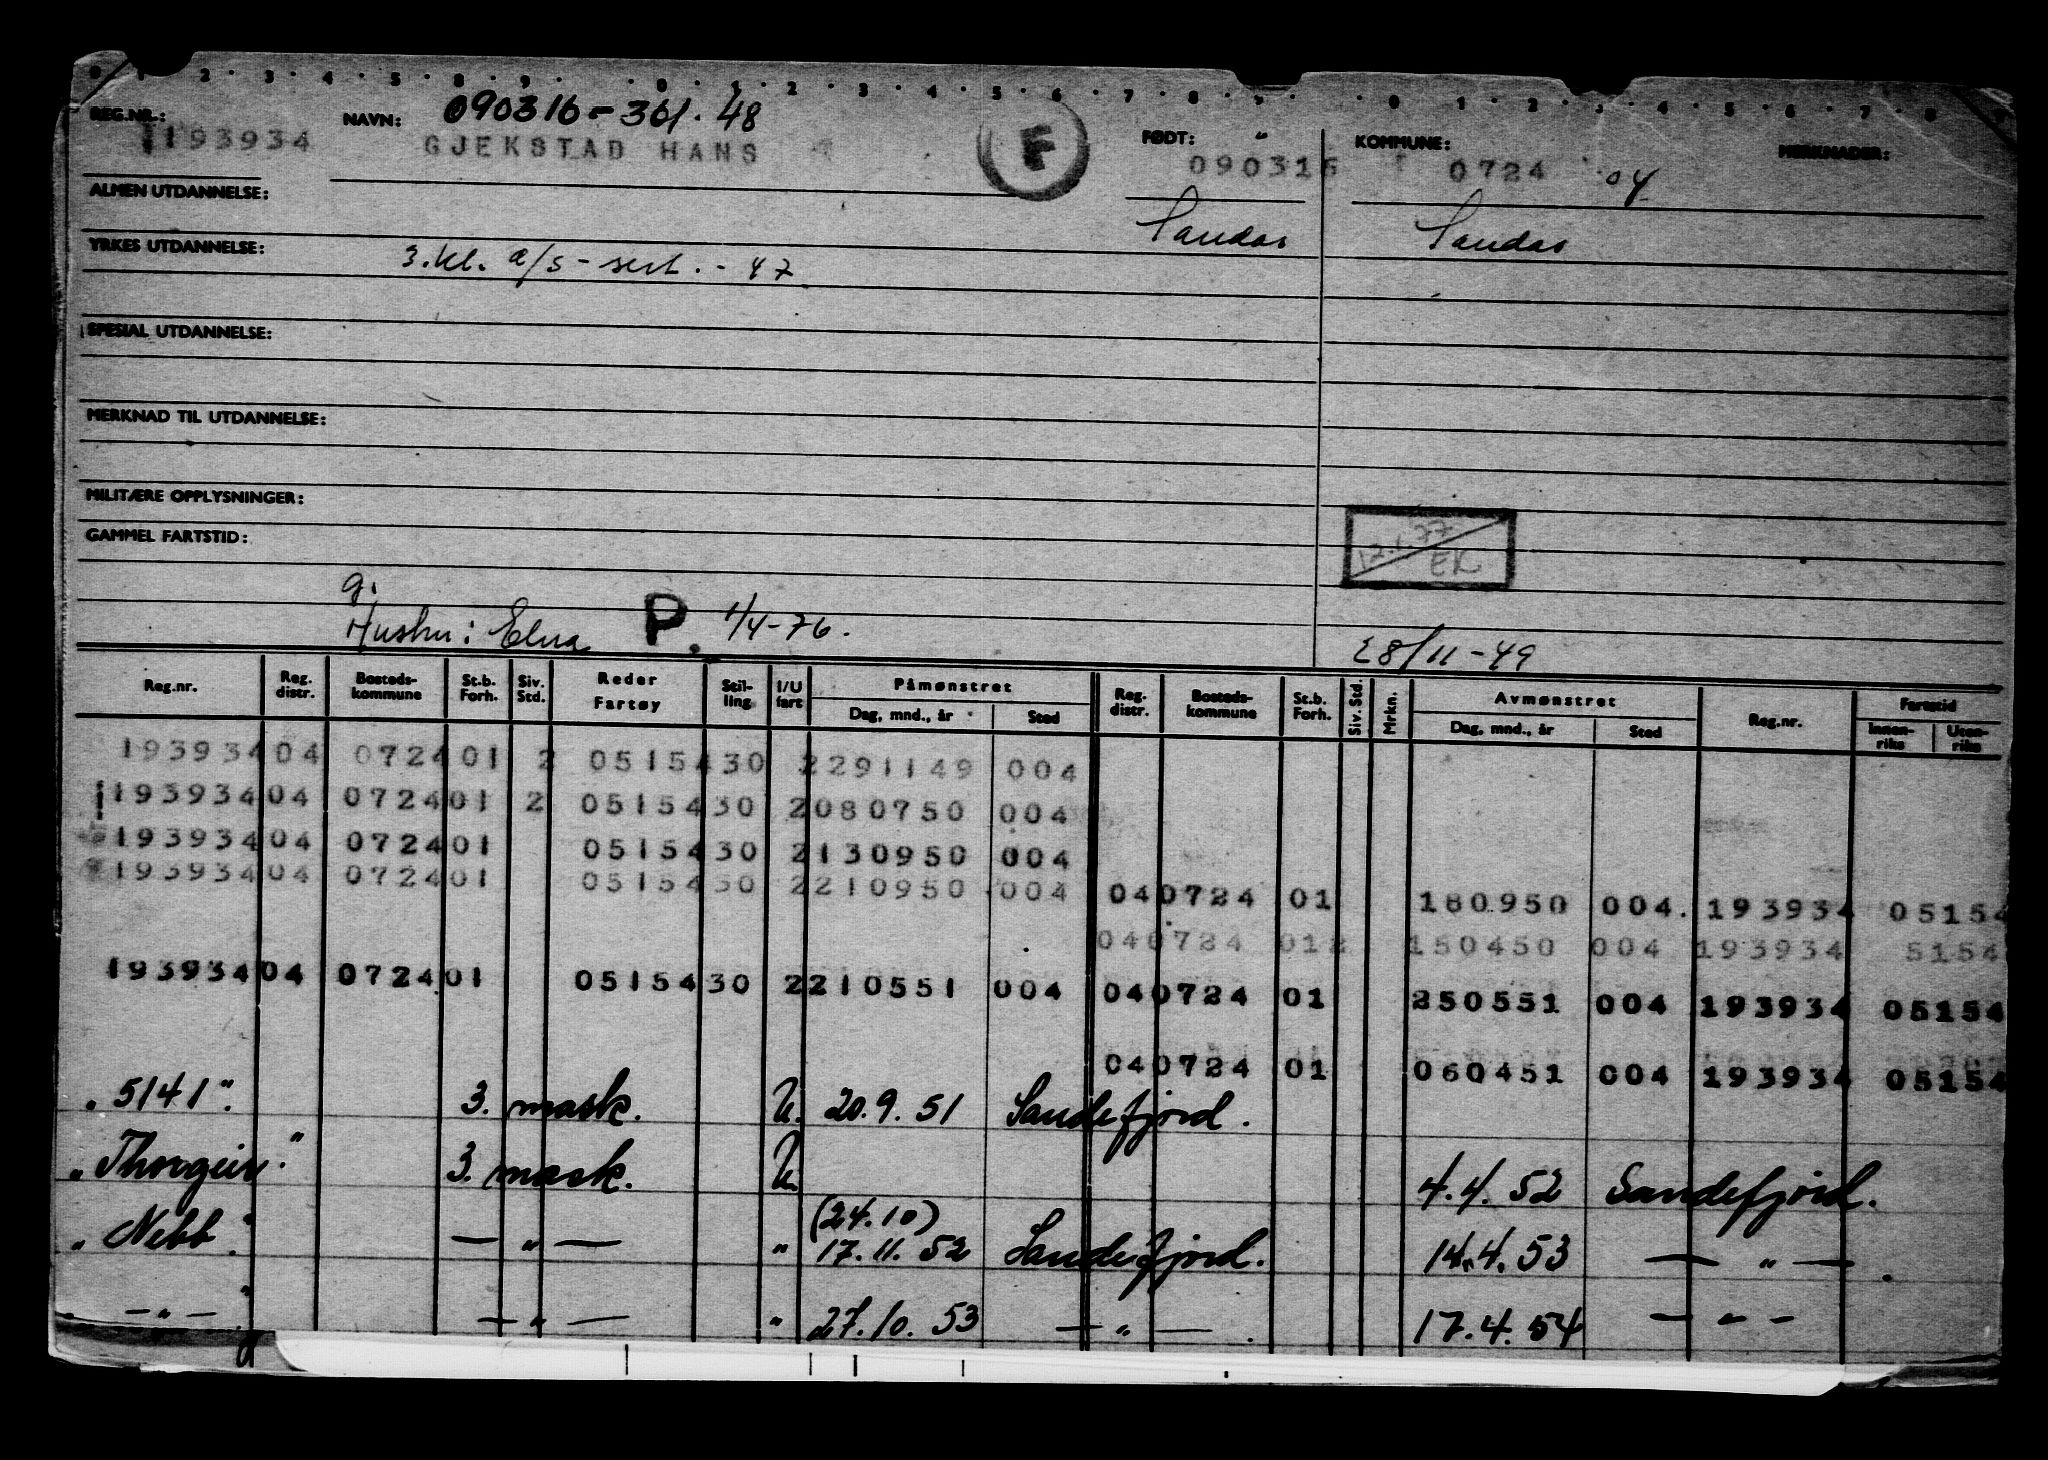 0 1 2 3 4 5 8 9 0 1 2 3 4 5 6 7 8 9 0 1 2 3 4 5 6 7 8 9
090316-361.48
REG.NR.: NAVN: FØDT: KOMMUNE: MERKNADER:
193934 GJEKSTAD HANS F 090316 0724 04
ALMEN UTDANNELSE:
Sandar Sandar
YRKES UTDANNELSE: 3.kl. a/s-sert. - 47
SPESIAL UTDANNELSE:
MERKNAD TIL UTDANNELSE:
MILITÆRE OPPLYSNINGER:
GAMMEL FARTSTID:
12.1.77 EK
g.
Hustru: Elna P. 1/4-76.
28/11-49
Reg.nr. Reg. distr. Bosteds-kommune St.b. Forh. Siv. Std. Reder Fartøy Stil-ling I/U fart Påmønstret Dag, mnd., år Sted Reg. distr. Bosteds-kommune St.b. Forh. Siv. Std. Mrkn. Avmønstret Dag, mnd., år Sted Reg.nr. Fartstid Innen-riks Uten-riks
193934 04 0724 01 2 05154 30 2 291149 004
193934 04 0724 01 2 05154 30 2 080750 004
193934 04 0724 01 05154 30 2 130950 004
193934 04 0724 01 05154 30 2 210950 004 04 0724 01 180950 004. 193934 05154
04 0724 01 2 150450 004 193934 5154
193934 04 0724 01 05154 30 2 210551 004 04 0724 01 250551 004 193934 05154
04 0724 01 060451 004 193934 05154
"5141". 3. mask. U. 20.9.51 Sandefjord.
"Thorgeir". 3. mask. U. 4.4.52 Sandefjord.
(24.10)
"Nebb". — " — " 17.11.52 Sandefjord. 14.4.53 — " —
— " — — " — " 27.10.53 — " — . 17.4.54 — " —